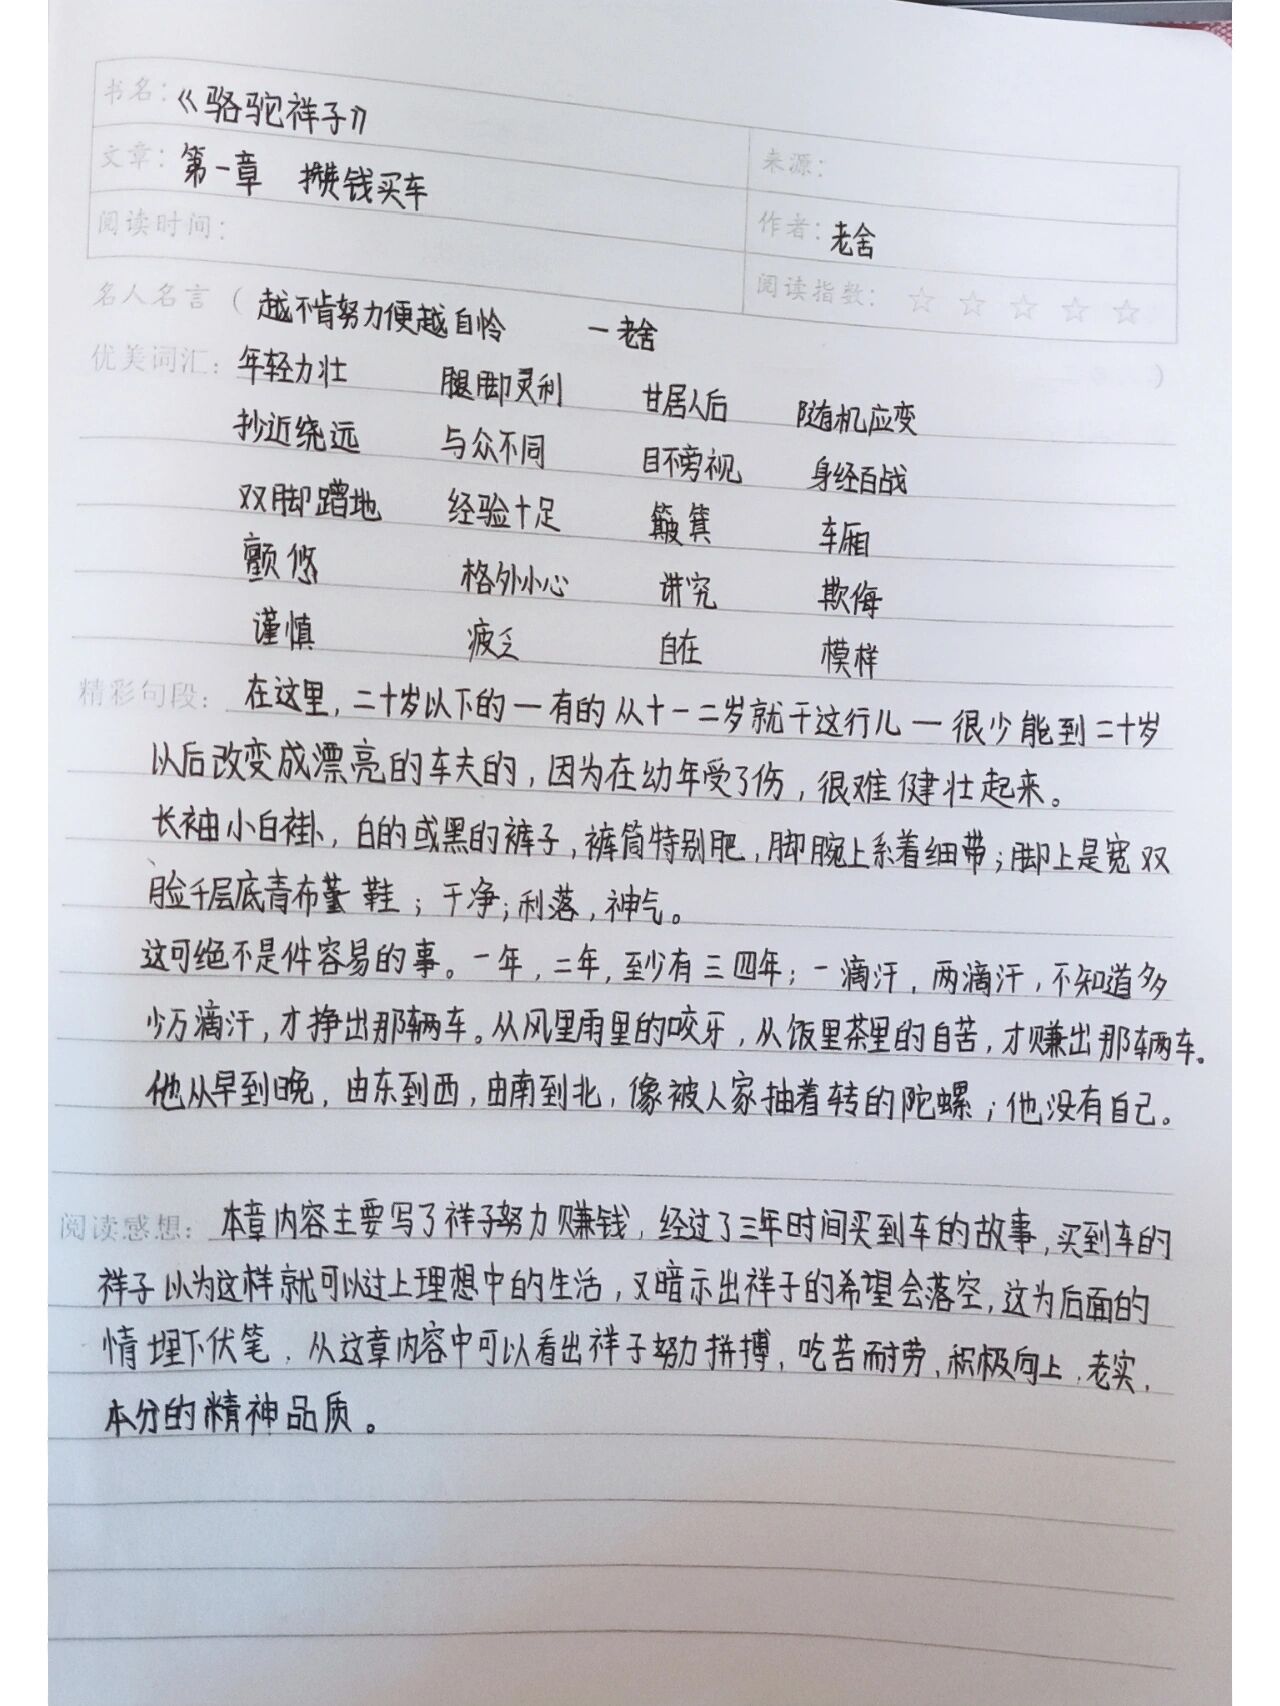 书名：《骆驼祥子》
文章：第一章 攒钱买车
来源：
阅读时间：
作者：老舍
阅读指数：☆ ☆ ☆ ☆ ☆
名人名言（越不肯努力便越自怜 —老舍 ）
优美词汇：年轻力壮 腿脚灵利 甘居人后 随机应变
抄近绕远 与众不同 目不旁视 身经百战
双脚蹭地 经验十足 簸箕 车厢
颤悠 格外小心 讲究 欺侮
谨慎 疲乏 自在 模样
精彩句段：在这里，二十岁以下的—有的从十一二岁就干这行儿—很少能到二十岁
以后改变成漂亮的车夫的，因为在幼年受了伤，很难健壮起来。
长袖小白褂，白的或黑的裤子，裤筒特别肥，脚腕上系着细带；脚上是宽双
脸千层底青布鞋；干净；利落，神气。
这可绝不是件容易的事。一年，二年，至少有三四年；一滴汗，两滴汗，不知道多
少万滴汗，才挣出那辆车。从风里雨里的咬牙，从饭里茶里的自苦，才赚出那辆车。
他从早到晚，由东到西，由南到北，像被人家抽着转的陀螺；他没有自己。
阅读感想：本章内容主要写了祥子努力赚钱，经过了三年时间买到车的故事，买到车的
祥子以为这样就可以过上理想中的生活，又暗示出祥子的希望会落空，这为后面的
情埋下伏笔，从这章内容中可以看出祥子努力拼搏，吃苦耐劳、积极向上，老实，
本分的精神品质。